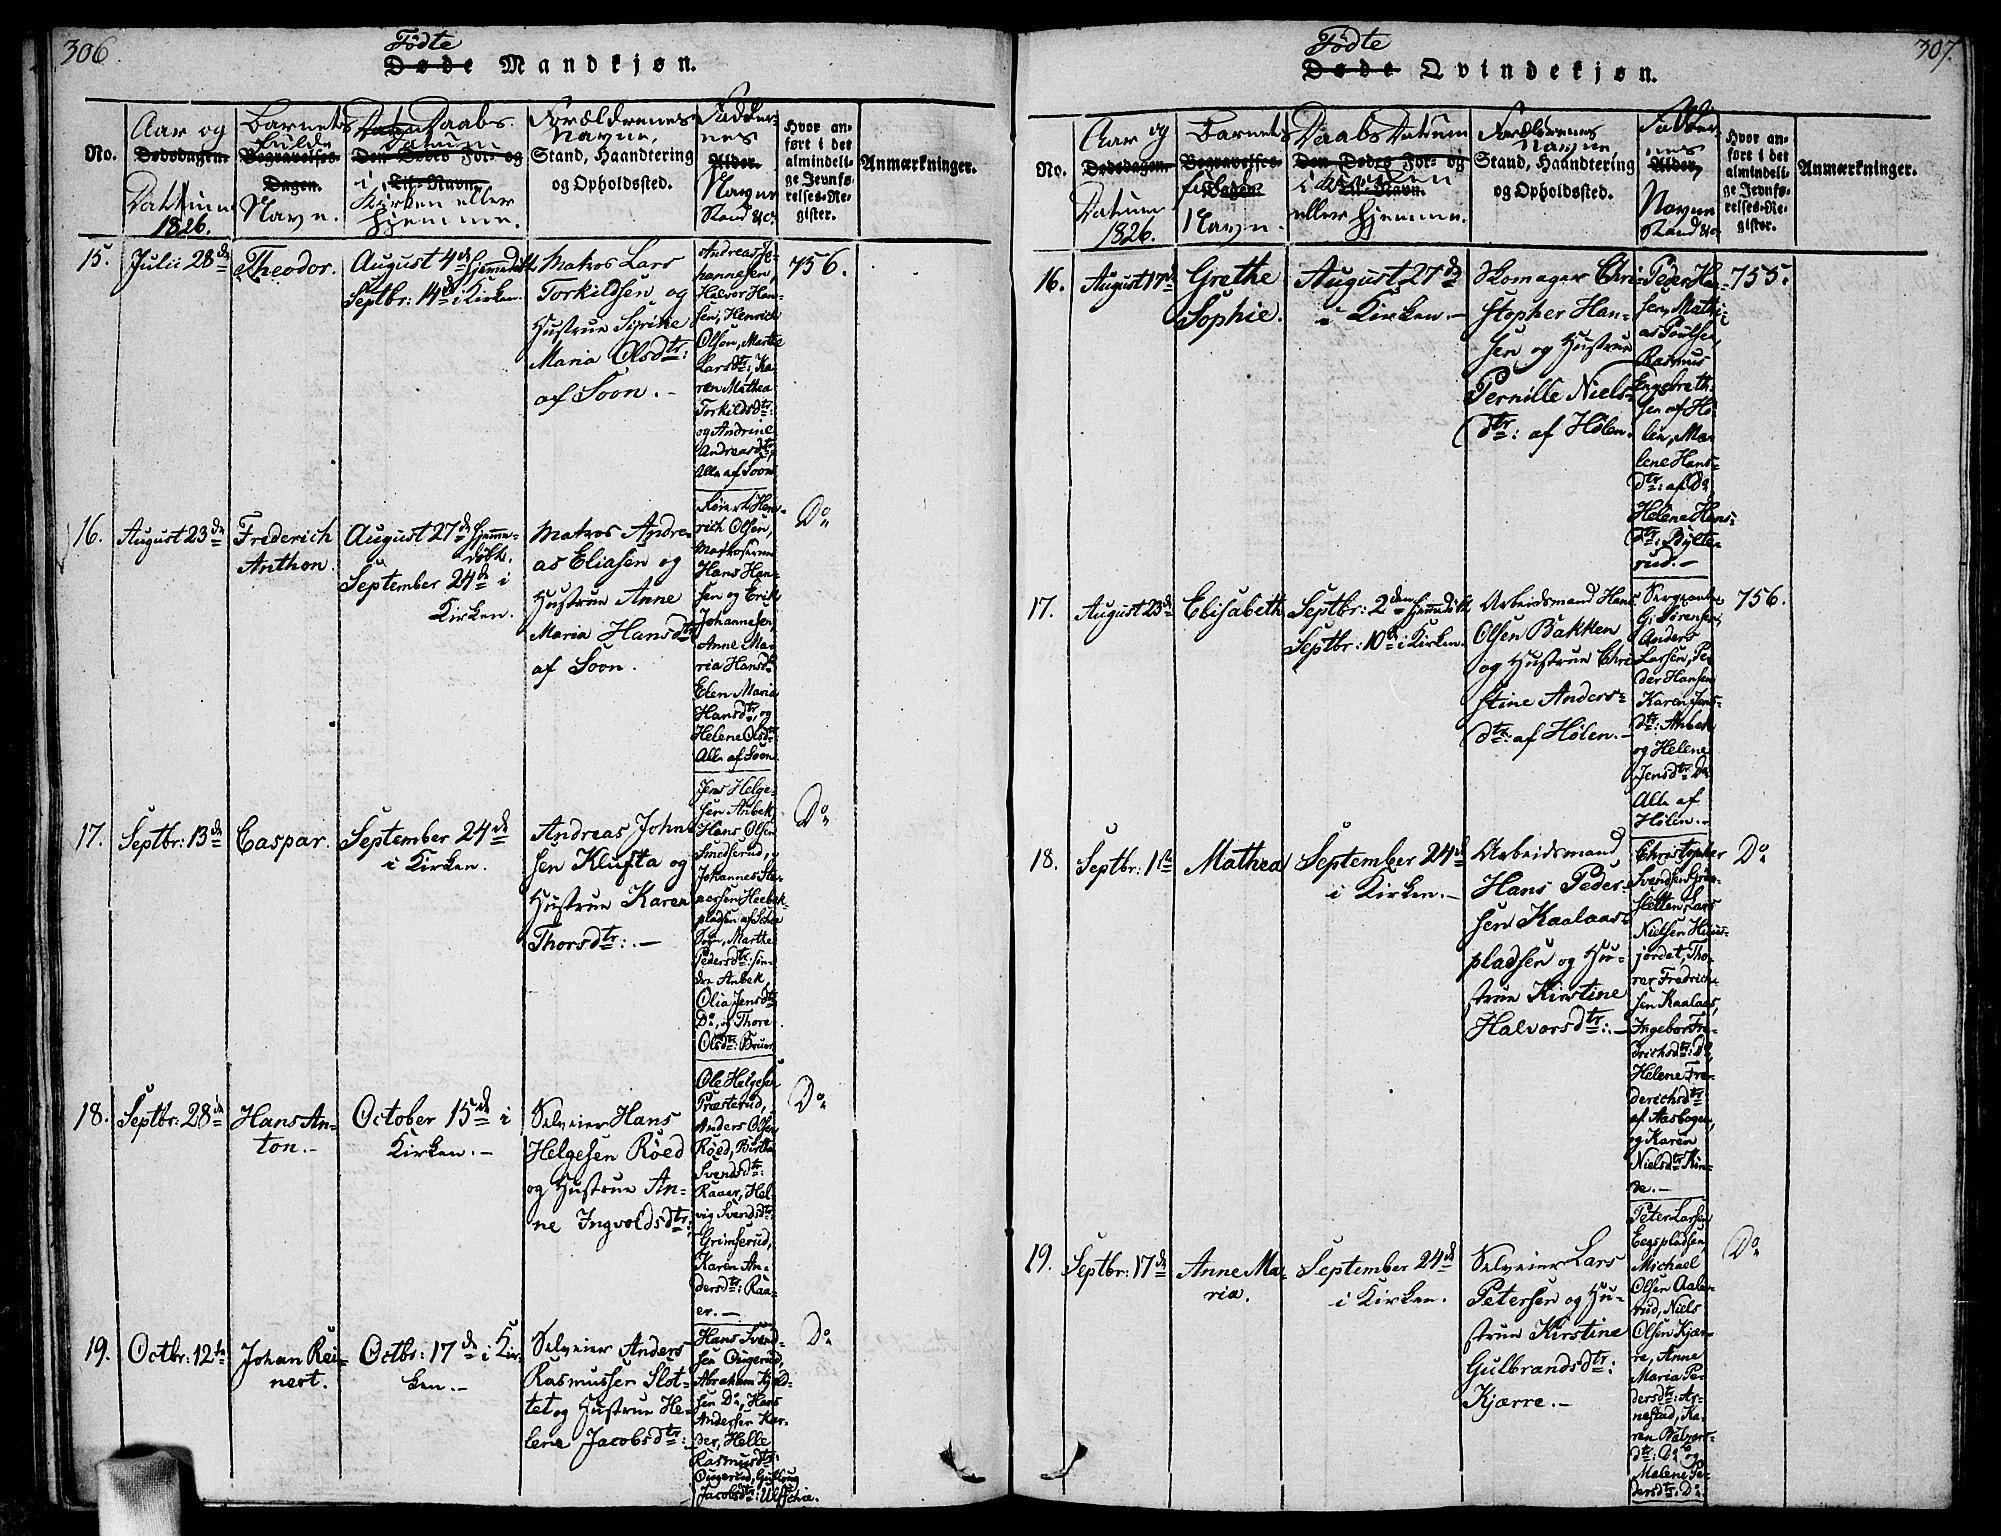 306.
Fødte
Døde Mandkjøn.
No.
Aar og
Dødsdagen.
Datum
1826.
Barnets
fulde
Begravelses-
Dagen.
Navn.
Daabs
Datum
Den Dødes For- og
i Til-Navn.
Kirken eller
hjemme.
Forældrenes
Navne,
Stand, Haandtering
og Opholdssted.
Fadder-
nes
Alder.
Navne
Stand &c.
Hvor an-
ført i det
almindeli-
ge Jevnfø-
relses-Re-
gister.
Anmærkninger.
15.
Julii 28de
Theodor.
August 4de hjemmedøbt
Septbr: 14de i Kirken.
Matros Lars
Torkildsen og
Hustrue
Maria Olsdtr:
af Soon.
Andreas Jo-
hannesen,
Halvor Han-
sen, Henrich
Olsen, Marthe
Larsdtr:, Ka-
ren Mathea
Torkildsdtr:
og Andrine
Andreasdtr:
Alle af Soon.
756.
16.
August 23de
Frederich
Anthon.
August 27de hjemme-
døbt.
September 24de i
Kirken.
Matros Andre-
as Eliasen og
Hustrue Anne
Maria Hansdtr:
af Soon.
Hen-
rich Olsen,
Matroserne
Hans Han-
sen og Erik
Johannesen,
Anne Ma-
ria Hansdtr:
Elen Maria
Hansdtr: og
Helene Olsdtr:
Alle af Soon.
Do
17.
Septbr: 13de
Caspar.
September 24de
i Kirken.
Andreas John-
sen Klufta og
Hustrue Karen
Thorsdtr:.-
Jens Helge-
sen Anbek,
Hans Olsen
Smedserud,
Johannes Ste-
nersen Heebek-
pladsen af
Marthe
Pedersdtr: søn-
dre Anbek,
Olia Jensdtr:
Do, og Thore
Olsdtr:
Do
18.
Septbr: 28de
Hans An-
ton.-
October 15de i
Kirken.-
Selveier Hans
Helgesen Røed
og Hustrue An-
ne Ingvoldsdtr:
Ole Helgesen
Præsterud,
Anders Olsen
Røed, Birthe
Svendsdtr:
Raaer, Hel-
vig Svendsdtr:
Grimserud,
Karen An-
dersdtr: Raa-
er.-
Do
19.
Octbr: 12te
Johan Rei-
nert.
Octbr: 17de i Kir-
ken.-
Selveier Anders
Rasmussen Slot-
tet og Hustrue He-
lene Jacobsdtr:
Hans Svend-
sen Ougerud,
Abraham
sen Do, Hans
Andersen Kar-
der, Helle
Rasmusdtr:
Ougerud,
Jacobsdtr:
Do
307.
Fødte
Døde Qvindekjøn.
No.
Aar og
Dødsdagen.
Datum
1826.
Barnets
Begravelses-
fulde
Dagen.
Navn.
Daabs Datum
Den Dødes For- og
i Kirken
Til-Navn.
eller hjemme.
Forældrenes
Navne,
Stand, Haandtering
og Opholdssted.
Fadder-
nes
Alder.
Navne
Stand &c.
Hvor an-
ført i det
almindeli-
ge Jevnfø-
relses-Re-
gister.
Anmærkninger.
16.
August 17de
Grethe
Sophie.
August 27de
i Kirken.-
Skomager Chri-
stopher Han-
sen og Hustrue
Pernille Niels-
dtr: af Hølen.
Peder Han-
sen, Mathi-
as Poulsen,
Rasmus
Engebreth-
sen af Hø-
len, Mar-
lene Hans-
dtr: af Do
Helene Hans-
dtr: Bylte-
rud.-
755.
17.
August 23de
Elisabeth
Septbr: 2den hjemmedøbt
Septbr: 10de i Kirken.
Arbeidsmand Hans
Olsen Bakken
og Hustrue Chri-
stine Anders-
dtr: af Hølen.-
Sergeanten
G. Sørensen,
Anders
Larsen, Pe-
der Hansen,
Karen Jens-
dtr: Anbek
og Helene
Jensdtr: Do
Alle af
Hølen.-
756.
18.
Septbr: 1te
Mathea
September 24de
i Kirken.-
Arbeidsmand
Hans Peder-
sen Kaalaas-
pladsen og Hu-
strue Kirstine
Halvorsdtr:.-
Christopher
Svendsen Grøn-
sletten, Lars
Nielsen
jordet, Tho-
rer Fredrich-
sen Kaalaas,
Ingebor Fre-
drichsdtr: Do,
Helene Fre-
derichsdtr:
af Aasbogen,
og Karen
Nielsdtr: Kin-
de.-
Do
19.
Septbr: 17de
Anne Ma-
ria.
September 24de
i Kirken.
Selveier Lars
Petersen og Hu-
strue Kirstine
Gulbrandsdtr:
Kjærre.-
Peter Larsen
Eegspladsen,
Michael
Olsen Aale-
rud, Niels
Olsen Kjær-
re, Anne
Maria Pe-
dersdtr: Ar-
nestad, Ka-
ren Halvors-
dtr: Do og
Malene Pe-
dersdtr: Do.
Do